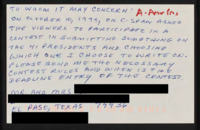 TO WHOM IT MAY CONCERN: A-Amer Ins
ON OCTOBER 10, 1999, ON C-SPAN ASKED
THE VIEWERS TO PARTICIPATE IN A
CONTEST IN SUBMITTING SOMETHING ON
THE 41 PRESIDENTS AND CHOOSING
WHICH ONE I CHOOSE TO WRITE ON.
PLEASE SEND ME THE NECESSARY
CONTEST RULES AND WHEN IS THE
DEADLINE ENTRY OF THE CONTEST
MR. AND MRS.
EL PASO, TEXAS 79936